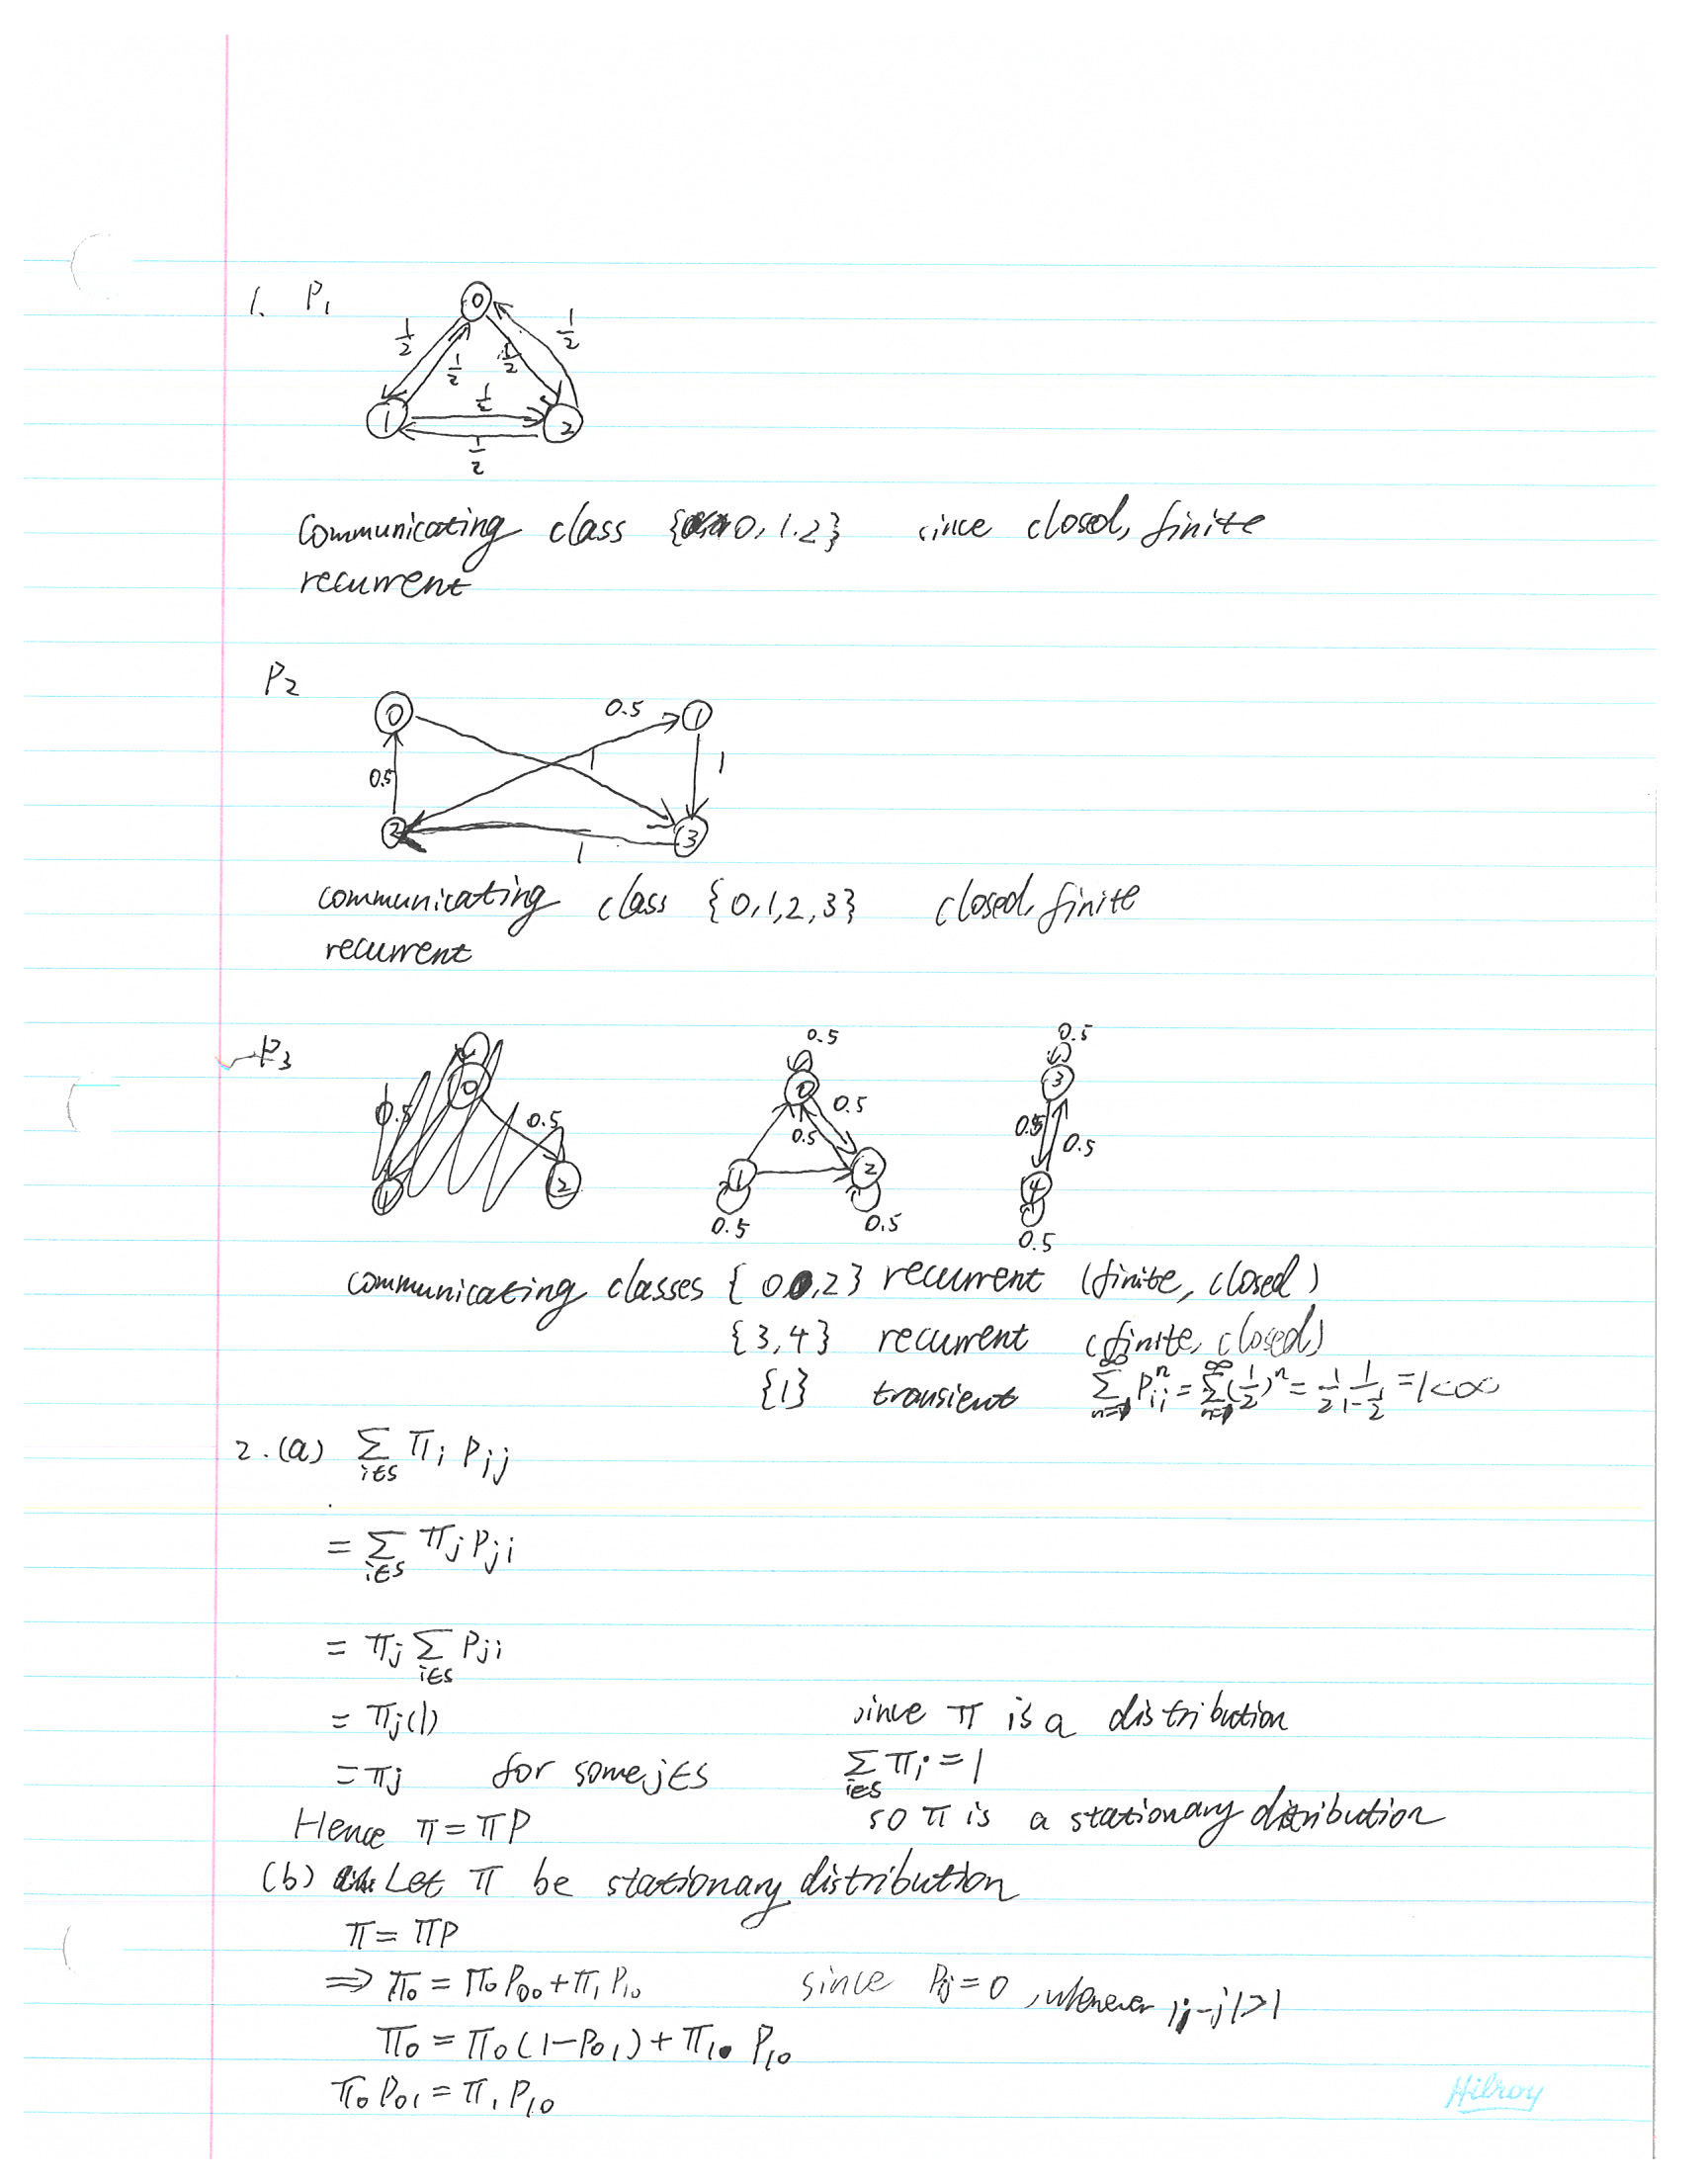 1. P₁
0
1/2 1/2 1/2 1/2
1 1/2 2
1/2
Communicating class {0, 1.2} since closed, finite
recurrent
P₂
0 0.5 1
0.5 1 1
2 3
1
communicating class {0,1,2,3} closed, finite
recurrent
P₃
0.5 0.5
0 0 3
0.5 0.5 0.5 0.5 0.5 0.5
2 1 2 4
0.5 0.5 0.5
communicating classes {0,2} recurrent (finite, closed)
{3,4} recurrent (finite, closed)
{1} transient ∑_{n=1}^∞ P_{ii}^n = ∑_{n=1}^∞ (1/2)^n = 1/2 1/(1-1/2) = 1<∞
2.(a) ∑_{i∈S} π_i P_{ij}
= ∑_{i∈S} π_j P_{ji}
= π_j ∑_{i∈S} P_{ji}
= π_j(1) since π is a distribution
= π_j for some j∈S ∑_{i∈S} π_i = 1
Hence π = πP so π is a stationary distribution
(b) Let π be stationary distribution
π = πP
⇒ π₀ = π₀P₀₀ + π₁P₁₀ since P_{ij} = 0, whenever |i-j|>1
π₀ = π₀(1-P₀₁) + π₁ P₁₀
π₀P₀₁ = π₁P₁₀
Hilroy